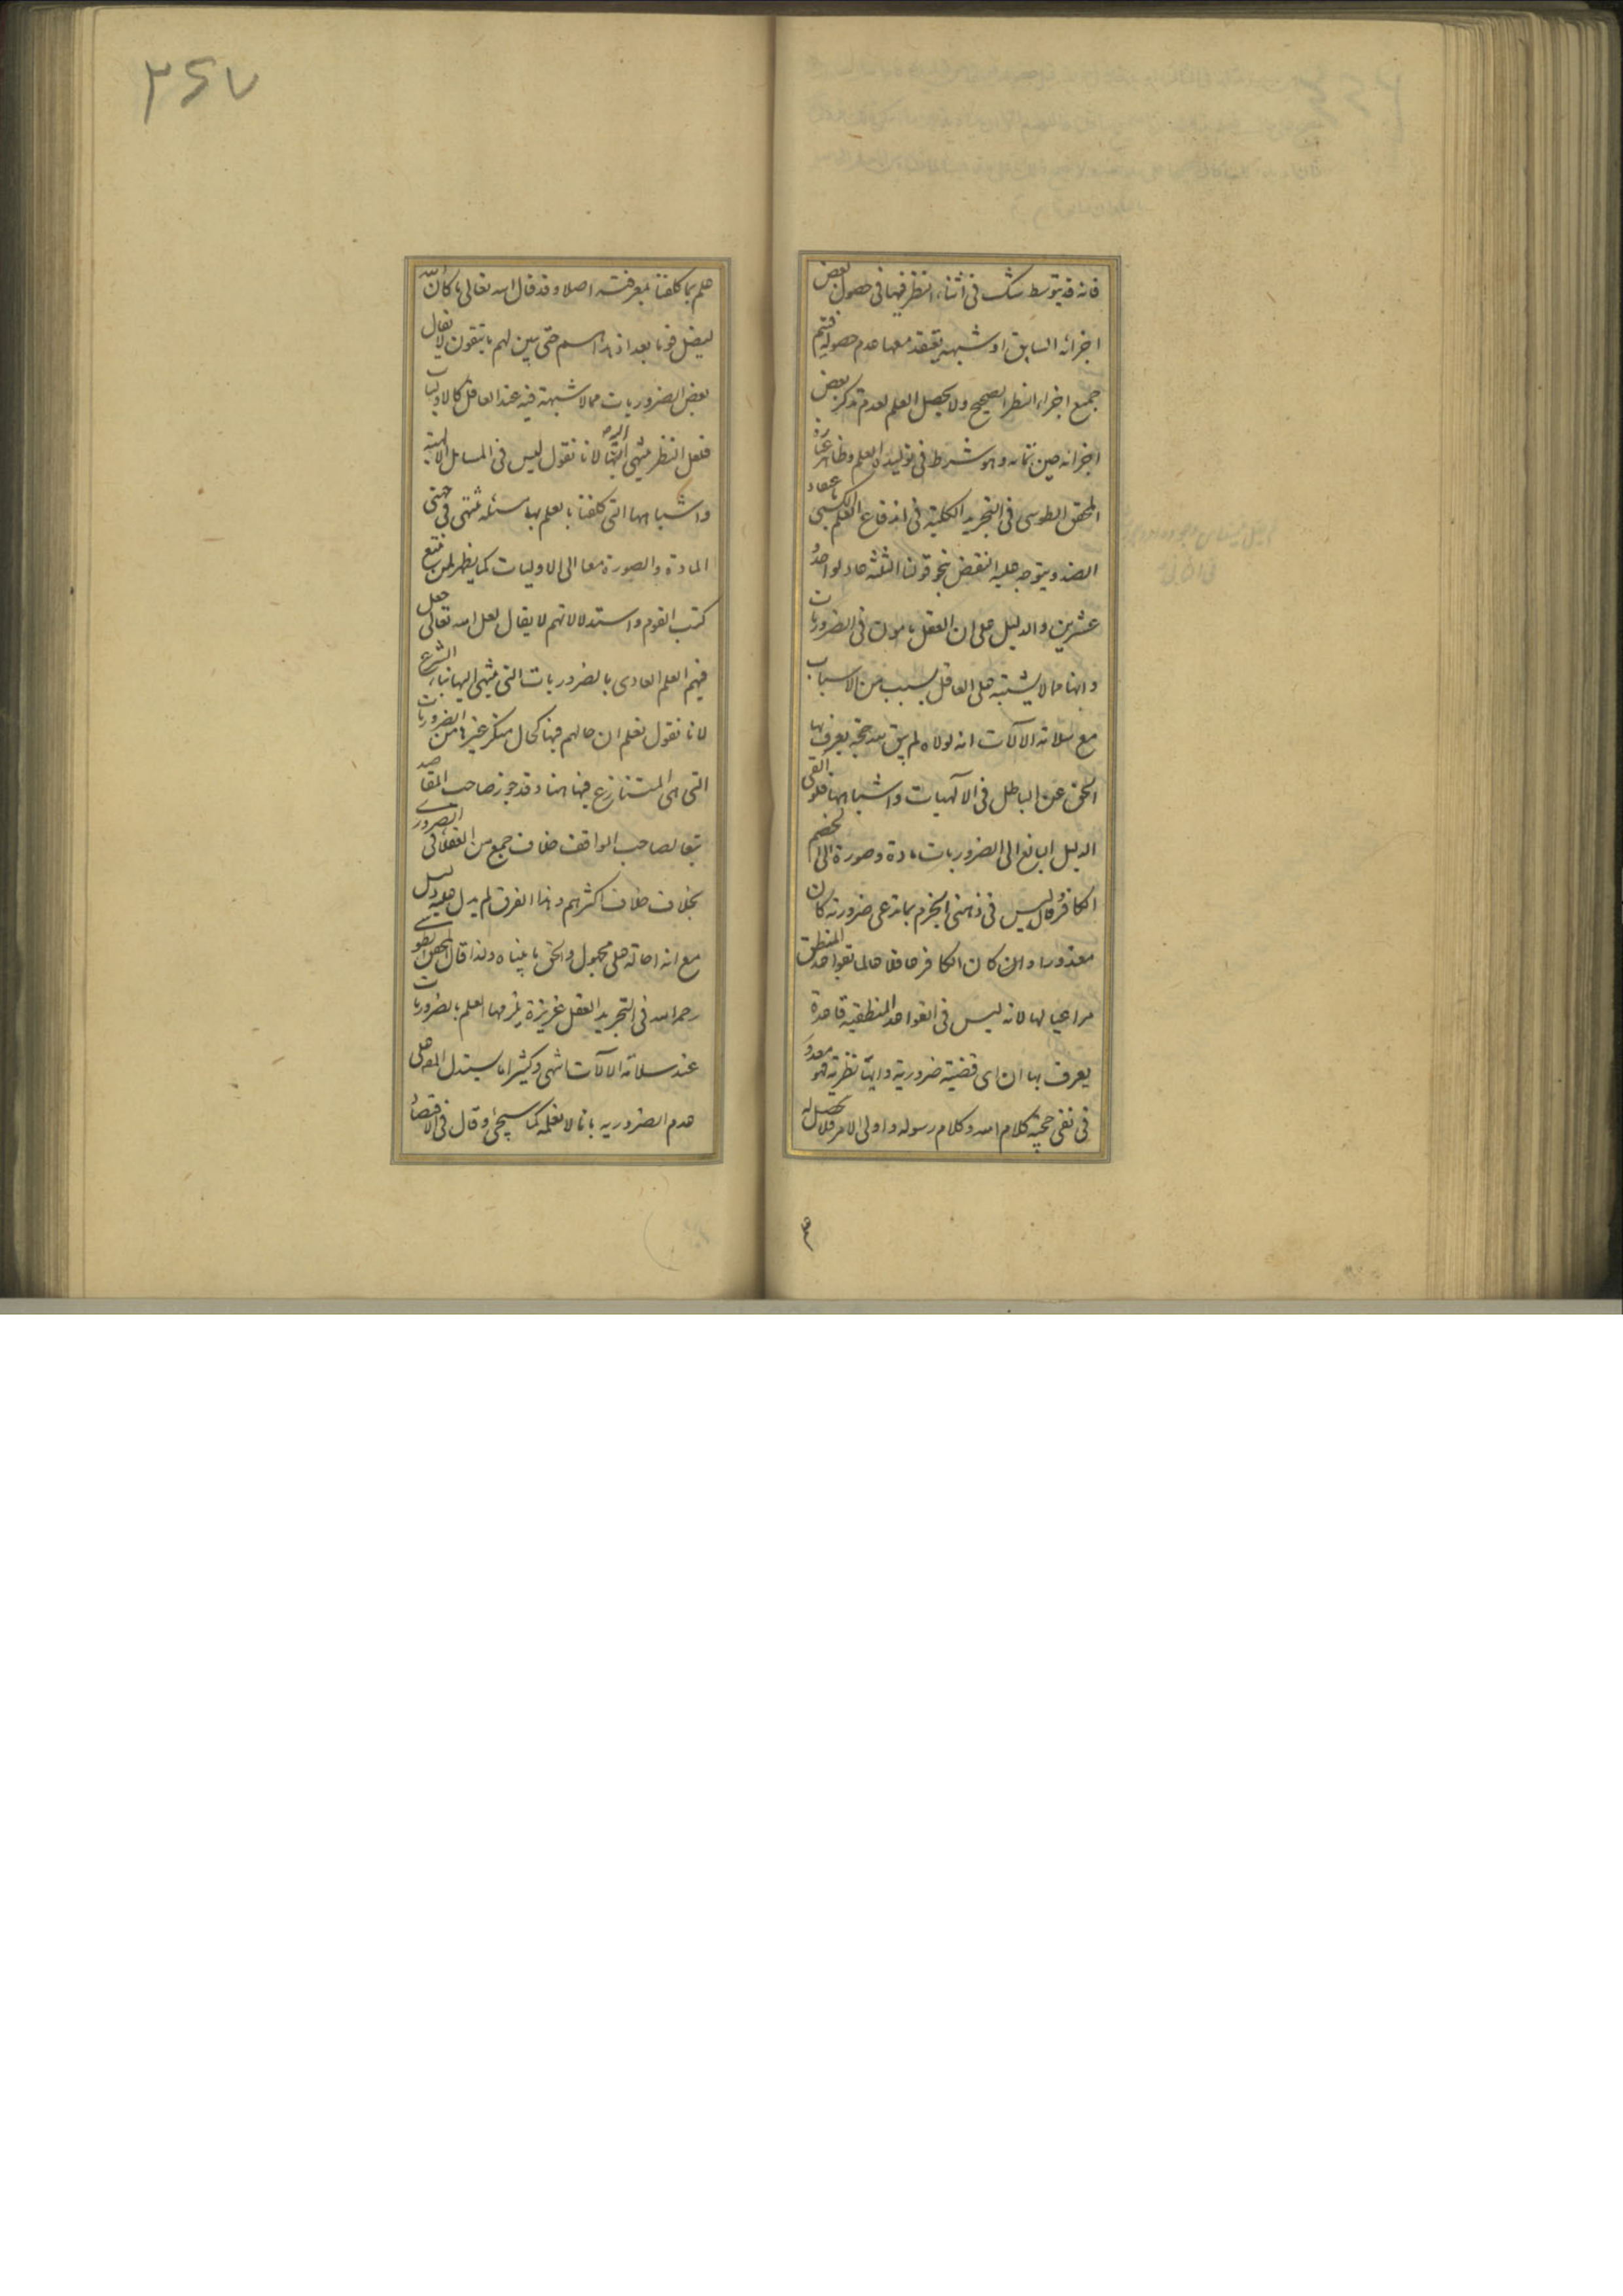 فانه قد يتوسط شك فى اثناء النظر فيها فى حصول بعض
اجزائه السابق او شبهة يعتقد معها عدم حصوله فيتم
جميع اجزاء النظر الصحيح ولا يحصل العلم لعدم تذكر بعض
اجزائه حين تمامه وهو شرط فى توليده العلم وظاهر عبارة
المحقق الطوسى فى التجريد الكلية فى اندفاع العلم الكسبى باعتقاد
الضد ويتوجه عليه النقض بنحو قولنا الثلثه عاد لواحد و
عشرين والدليل على ان العقل مامون فى الضروريات
وانها مما لا يشتبه على العاقل بسبب من الاسباب
مع سلامة الالات انه لولاه لم يبق بعد حجة يعرف بها
الحق عن الباطل فى الالهيات واشباهها فلو القى
الدليل البالغ الى الضروريات مادة وصورة الى الخصم
الكافر وقال ليس فى ذهنى الجزم بما تدعى ضرورته كان
معذورا وان كان الكافر عاقلا عالما بقواعد المنطق
مراعيا لها لانه ليس فى القواعد المنطقية قاعدة
يعرف بها ان اى قضية ضرورية وايتها نظرية فهو معذور
فى نفى حجية كلام الله وكلام رسوله واولى الامر فلا يحصل له
علم بما كلفنا بمعرفته اصلا وقد قال الله تعالى ما كان الله
ليضل قوما بعد اذ هداهم حتى يبين لهم ما يتقون لا يقال
بعض الضروريات مما لا شبهة فيه عند العاقل كالاوليات
فلعل النظر ينتهى اليها لانا نقول ليس فى المسائل الالهية
واشباهها التى كلفنا بالعلم بها مسئلة تنتهى فى جهتى
المادة والصورة معا الى الاوليات كما يظهر لمن تتبع
كتب القوم واستدلالاتهم لا يقال لعل الله تعالى جعل
فيهم العلم العادى بالضروريات التى ينتهى اليها بناء الشرع
لانا نقول نعلم ان حالهم فيها كحال منكر غيرها من الضروريات
التى هى المتنازع فيها هنا وقد جوز صاحب المقاصد
تبعا لصاحب المواقف خلاف جمع من العقلاء فى الضرورى
بخلاف خلاف اكثرهم وهذا الفرق لم يدل عليه دليل
مع انه احالة على مجهول والحق ما بيناه ولذا قال المحقق الطوسى
رحمه الله فى التجريد العقل غريزة يلزمها العلم بالضروريات
عند سلامة الالات انتهى وكثيرا ما يستدل المص على
عدم الضرورية بانا لا نعلمه كما سيجئ وقال فى الاقتصاد
علم